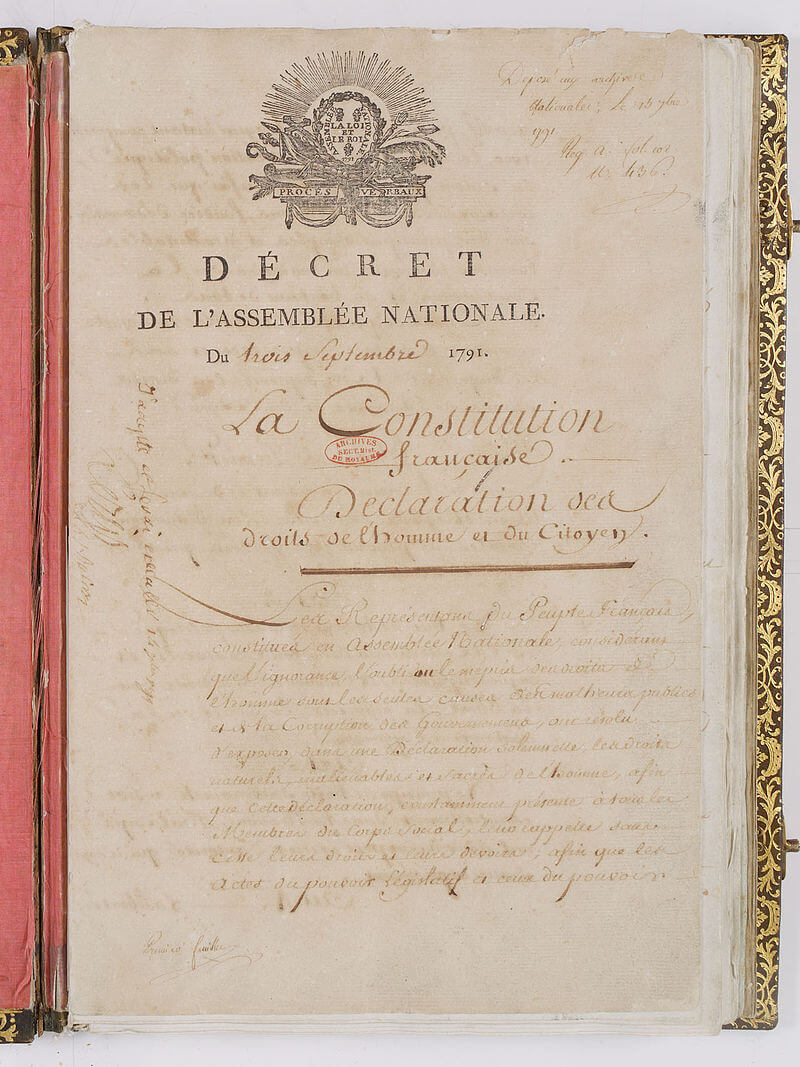 ASSEMBLÉE NATIONALE
LA LOI
ET
LE ROI
1791
PROCÈS VERBAUX
Déposé aux archives
Nationales, le 15 7bre
1791.
Reg. A. fol.
N. 436.
DÉCRET
DE L'ASSEMBLÉE NATIONALE.
Du trois Septembre 1791.
La Constitution
française.
ARCHIVES
SECT. HIST.
DU ROYAUME
Déclaration des
droits de l'homme et du Citoyen.
J'accepte et ferai exécuter 14 7bre 1791
Louis
Les Représentans du Peuple Français,
constitués en Assemblée Nationale, considérant
que l'ignorance, l'oubli ou le mépris des droits de
l'homme sont les seules causes des malheurs publics
et de la Corruption des Gouvernemens, ont résolu
d'exposer, dans une Déclaration solemnelle, les droits
naturels, inaliénables et sacrés de l'homme, afin
que cette déclaration, constamment présente à tous les
Membres du Corps Social, leur rappelle sans
cesse leurs droits et leurs devoirs ; afin que les
Actes du pouvoir législatif et ceux du pouvoir
Premiere feuille